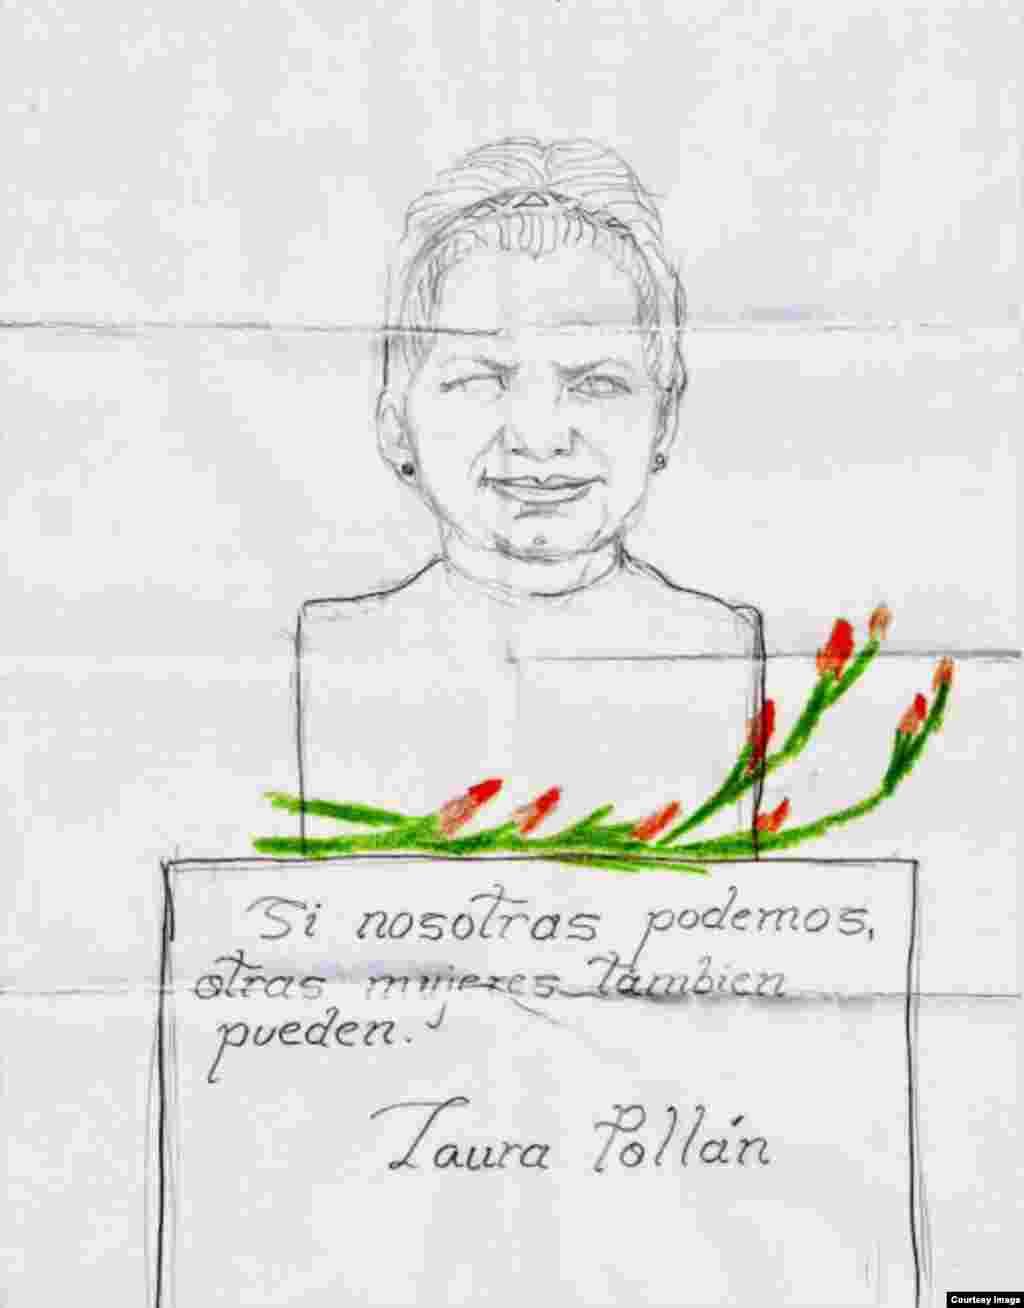 Si nosotras podemos,
otras mujeres tambien
pueden.
Laura Pollán
Courtesy Image